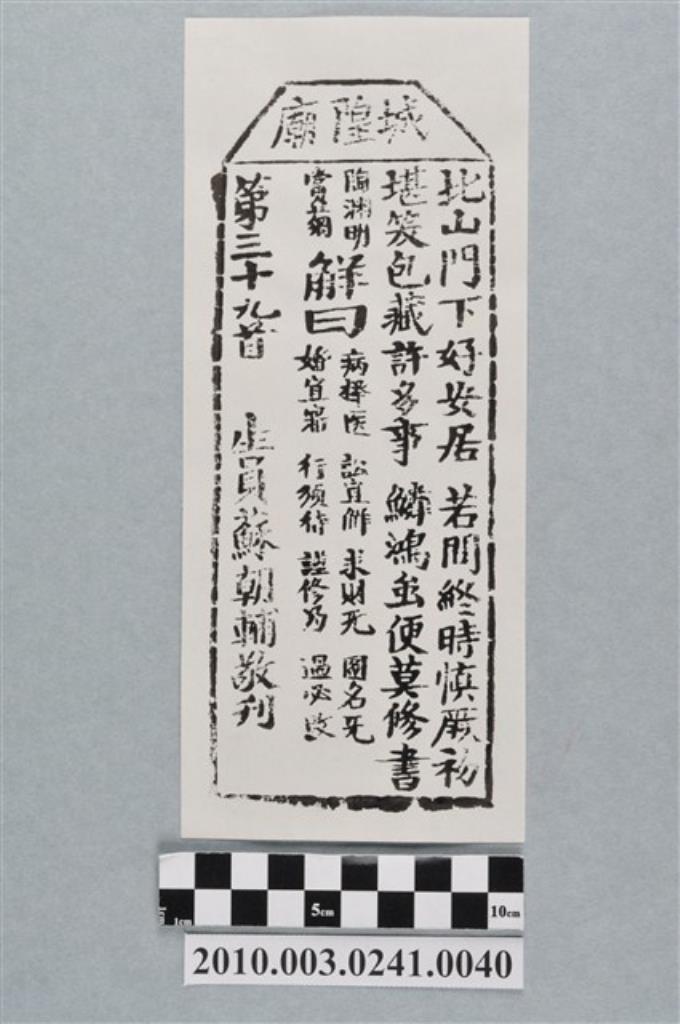 城隍廟
北山門下好安居 若問終時慎厥初
堪笑包藏許多事 鱗鴻虽便莫修書
陶渊明
賞菊
解曰
病擇医 訟宜觧 求財无 圖名无
婚宜審 行須待 謹修為 過必改
第三十九首 生員蘇朝輔敬刊
1cm 5cm 10cm
2010.003.0241.0040